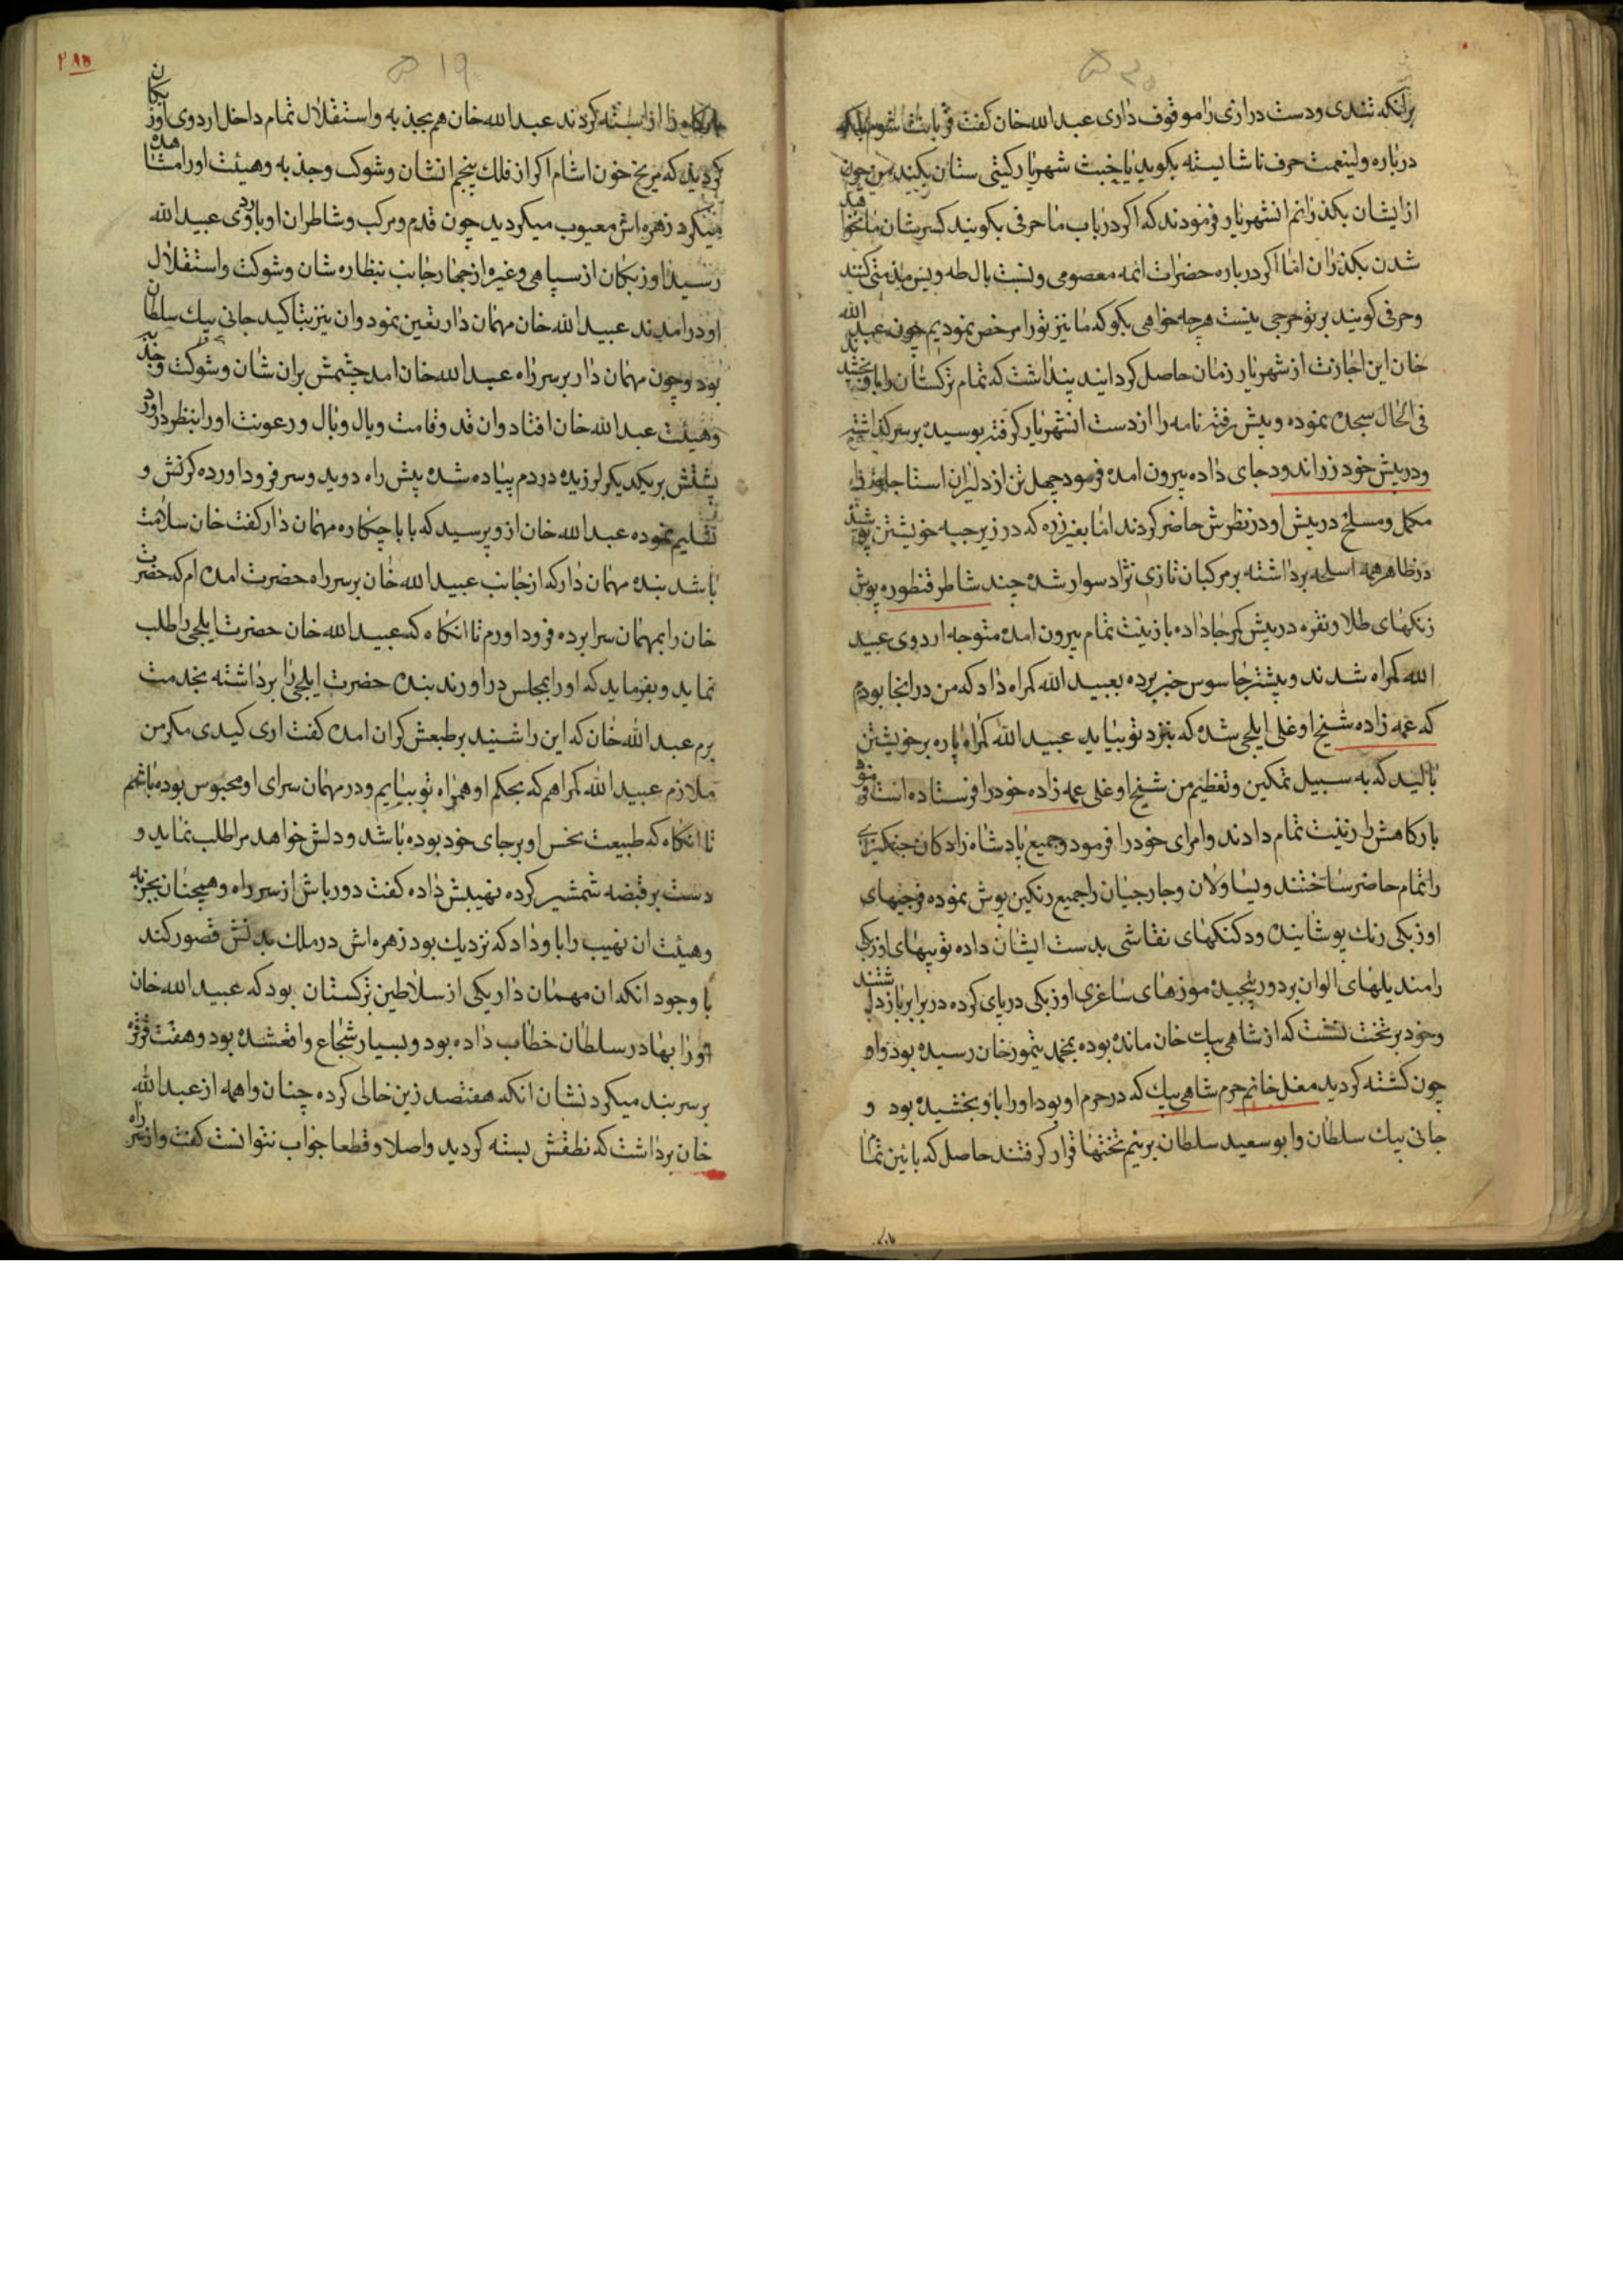 برانکه تندی ودست درازی را موقوف داری عبدالله خان کفت قربانت شوم
درباره ولینعمت حرف ناشایسته بکوید یا خبث شهریار کیتی ستان بکیند من چون
ازایشان بکذرانم انشهریار فرمودند که اکر درباب ما حرفی بکویند کسرشان ما نخواهد
شدن بکذران اما اکر درباره حضرات ائمه معصومی ونسبت بال طه ویس مذمتی کنند
وحرفی کویند برتو حرجی نیست هرچه خواهی بکو که ما نیز تورا مرخص نمودیم چون عبدالله
خان این اجازت از شهریار زمان حاصل کردانید پنداشت که تمام ترکستان را باو بخشید
فی الحال سجده نموده وپیش رفته نامه را ازدست انشهریار کرفته بوسیده برسر کذاشته
ودرپیش خود زراندود جای داده بیرون امده فرمود چهل تن از دلیران استاجلو را
مکمل ومسلح درپیش او درنظرش حاضر کردند اما بغیر زره که در زیر جبه خویشتن پوشید
درظاهر همه اسلحه برداشته برمرکبان تازی نژاد سوار شده چند شاطر قنطوره پوش
زنکهای طلا ونقره درپیش کمر جا داده با زینت تمام بیرون امده متوجه اردوی عبید
الله کمراه شدند وپیشتر جاسوس خبر برده بعبید الله کمراه داد که من درانجا بودم
که عمه زاده شیخ اوغلی ایلچی شده که بنزد تو بیاید عبید الله کمراه پاره برخویشتن
بالید که به سبیل تمکین وتعظیم من شیخ اوغلی عمه زاده خود را فرستاده است فرمود
بارکاهش را زینت تمام دادند وامرای خود را فرمود وجمیع پادشاه زادکان چنکیزی
را تمام حاضر ساختند ویساولان وجارجیان را جمیع رنکین پوش نموده فرجیهای
اوزبکی رنک پوشانیده ودکنکهای نقاشی بدست ایشان داده توپیهای اوزبکی
را مندیلهای الوان بر دور پیچیده موزهای ساغری اوزبکی درپای کرده دربرابر بازداشتند
وخود برتخت نشست که از شاهی بیک خان مانده بوده بمحمد تیمور خان رسیده بود واو
چون کشته کردید مغل خانم حرم شاهی بیک که در حرم او بود اورا باو بخشیده بود و
جانی بیک سلطان وابوسعید سلطان برنیم تختها قرار کرفتند حاصل که باین تمام
۲۸۵
۱۹
بارکاه را اراسته کردند عبدالله خان هم بجذبه واستقلال تمام داخل اردوی اوزبکان
کردید که مریخ خون اشام اکر از فلک پنجم انشان وشوکت وجذبه وهیئت اورا مشاهده
میکرد زهره اش معیوب میکردید چون قدم ومرکب وشاطران او باردوی عبیدالله
رسید اوزبکان از سپاهی وغیره از چهار جانب بنظاره شان وشوکت واستقلال
او درامدند عبیدالله خان مهمان دار تعین نمود وان نیز بتاکید جانی بیک سلطان
بود وچون مهمان دار برسر راه عبدالله خان امد چشمش بران شان وشوکت وجذبه
وهیئت عبدالله خان افتاد وان قد وقامت ویال وبال ورعونت اورا بنظر دراورد
پشتش بریکدیکر لرزیده دردم پیاده شده پیش راه دوید وسر فرود اورده کرنش و
تسلیم نموده عبدالله خان ازو پرسید که بابا چکاره مهمان دار کفت خان سلامت
باشد بنده مهمان دارکه ازجانب عبیدالله خان برسر راه حضرت امده ام که حضرت
خان را بمهمان سرا برده فرود اورم تا انکاه که عبیدالله خان حضرت ایلچی را طلب
نماید وبفرماید که اورا بمجلس دراورند بنده حضرت ایلچی را برداشته بخدمت
برم عبدالله خان که این را شنید برطبعش کران امده کفت اری کیدی مکر من
ملازم عبیدالله کمراهم که بحکم او همراه تو بیایم ودر مهمان سرای او محبوس بوده باشم
تا انکاه که طبیعت نحس او برجای خود بوده باشد ودلش خواهد مرا طلب نماید و
دست برقبضه شمشیر کرده نهیبش داده کفت دور باش از سر راه وهمچنان بجذبه
وهیئت ان نهیب را باو داد که نزدیک بود زهره اش درملک بدنش قصور کند
با وجود انکه ان مهمان دار یکی از سلاطین ترکستان بود که عبیدالله خان
اورا بهادر سلطان خطاب داده بود وبسیار شجاع واقعشده بود وهفت
برسر بند میکرد نشان انکه هفتصد زین خالی کرده چنان واهمه از عبدالله
خان برداشت که نطقش بسته کردید واصلا وقطعا جواب نتوانست کفت واز سر راه